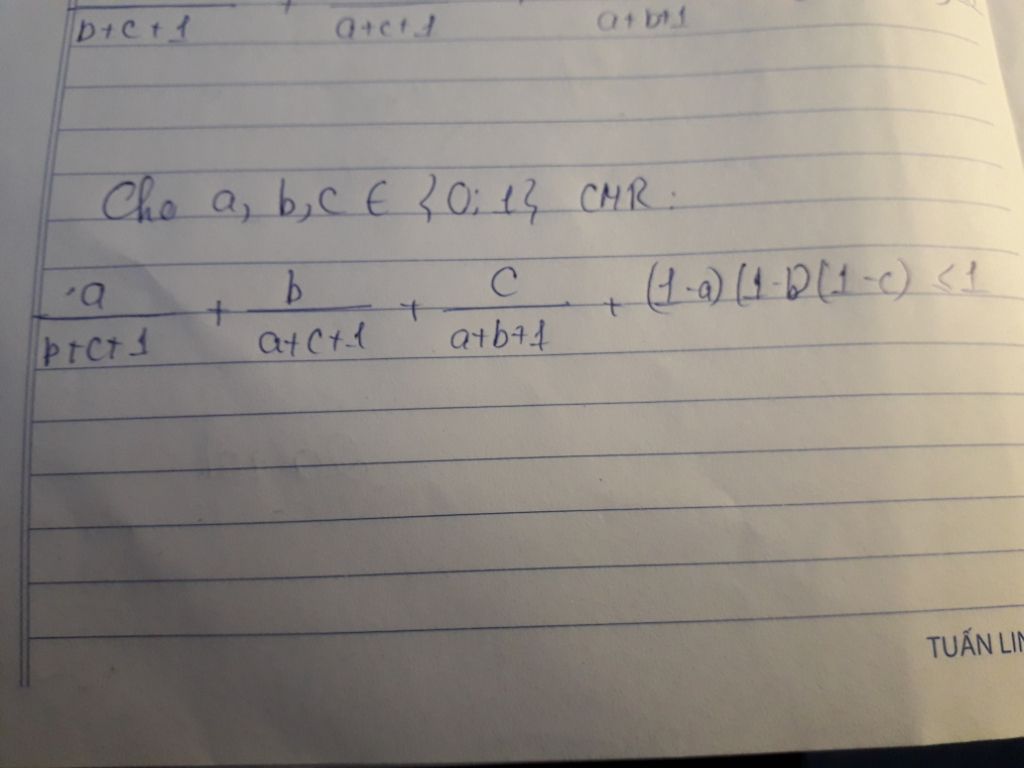 b+c+1 a+c+1 a+b+1
Cho a, b, c ∈ {0; 1} CMR:
a/(b+c+1) + b/(a+c+1) + c/(a+b+1) + (1-a)(1-b)(1-c) ≤ 1
TUẤN LIN